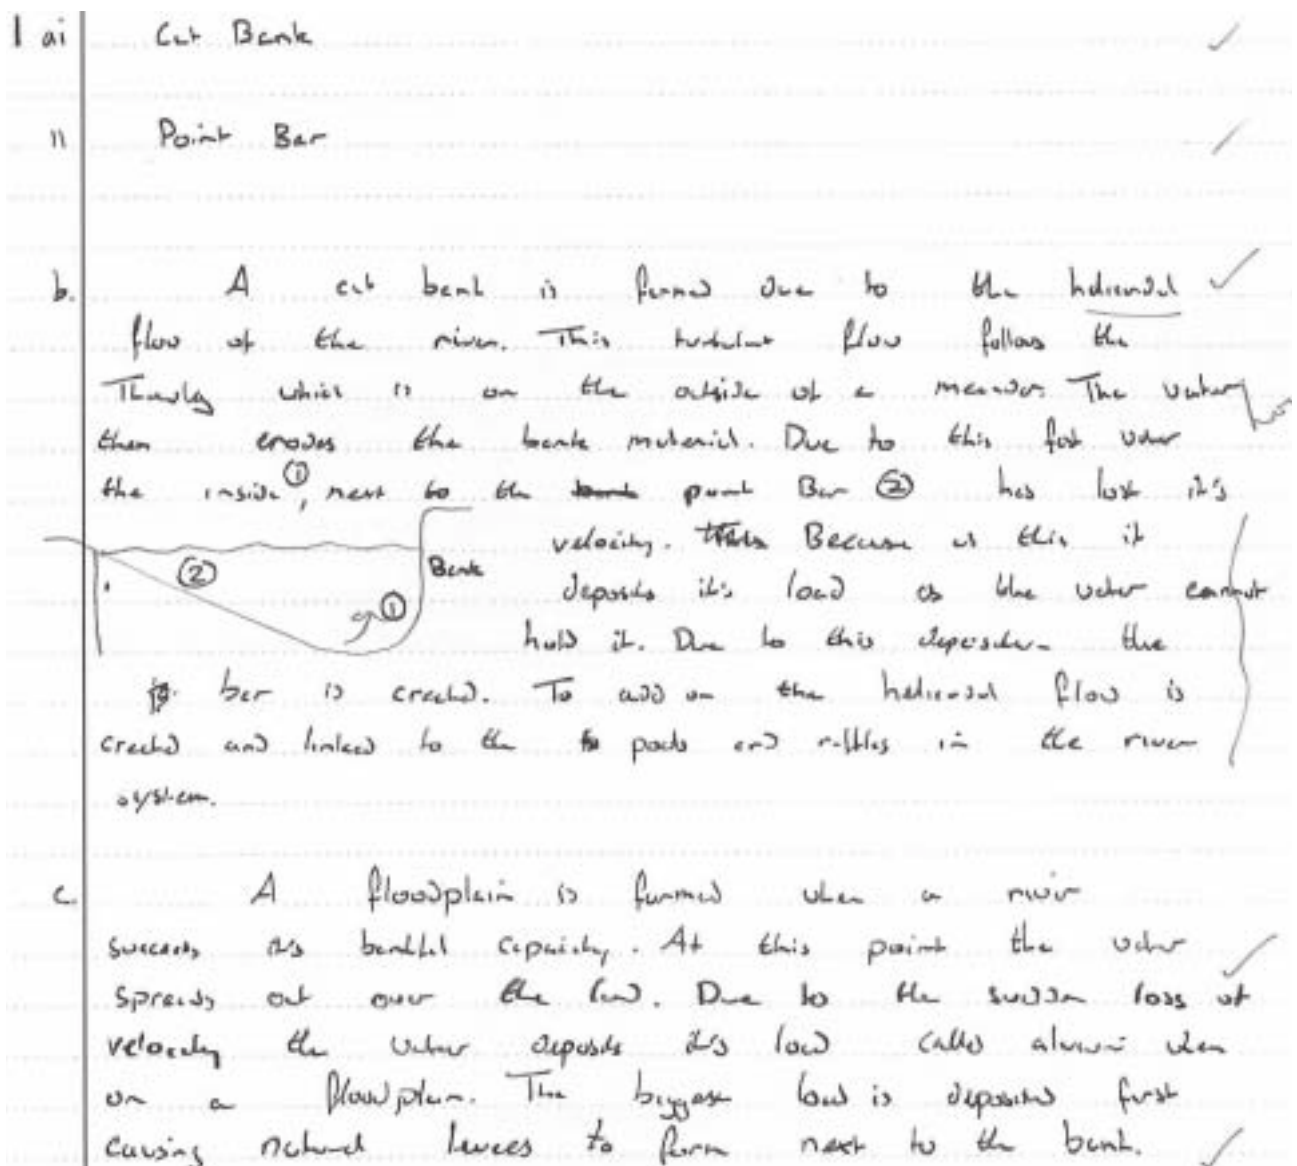 1 ai Cut Bank
ii Point Bar
b. A cut bank is formed due to the helicoidal
flow of the river. This turbulent flow follows the
Thawleg which is on the outside of a meander. The water
then erodes the bank material. Due to this fast water
the inside ①, next to the bank point Bar ② has lost it's
velocity. Because of this it
② Bank
deposits it's load as the water cannot
①
hold it. Due to this deposition the
bar is created. To add on the helicoidal flow is
created and linked to the pools and riffles in the river
system.
c. A floodplain is formed when a river
succeeds its bankful capacity. At this point the water
spreads out over the land. Due to the sudden loss of
velocity the water deposits it's load called when
on a floodplain. The biggest load is deposited first
causing natural levees to form next to the bank.